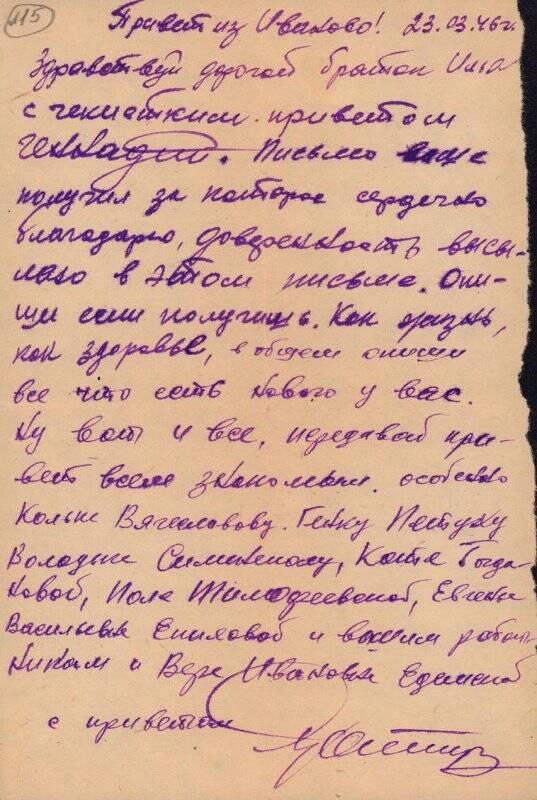 115
Привет из Иваново! 23.03.46 г.
Здравствуй дорогой браток
с чекистким приветом
Геннадий. Письмо
получил за которое сердечно
благодарю, доверенность высы-
лаю в этом письме. Опи-
ши если получишь. Как жизнь,
как здоровье, в общем опиши
все что есть нового у вас.
Ну вот и все, передавай при-
вет всем знакомым. особенно
Кольке Вячеславову. Генку Петуху
Володьке Костя Богда-
новой, Поле Тимофеевской, Евгенье
Васильевне и вашим работ-
никам и Вере Ивановне
с приветом